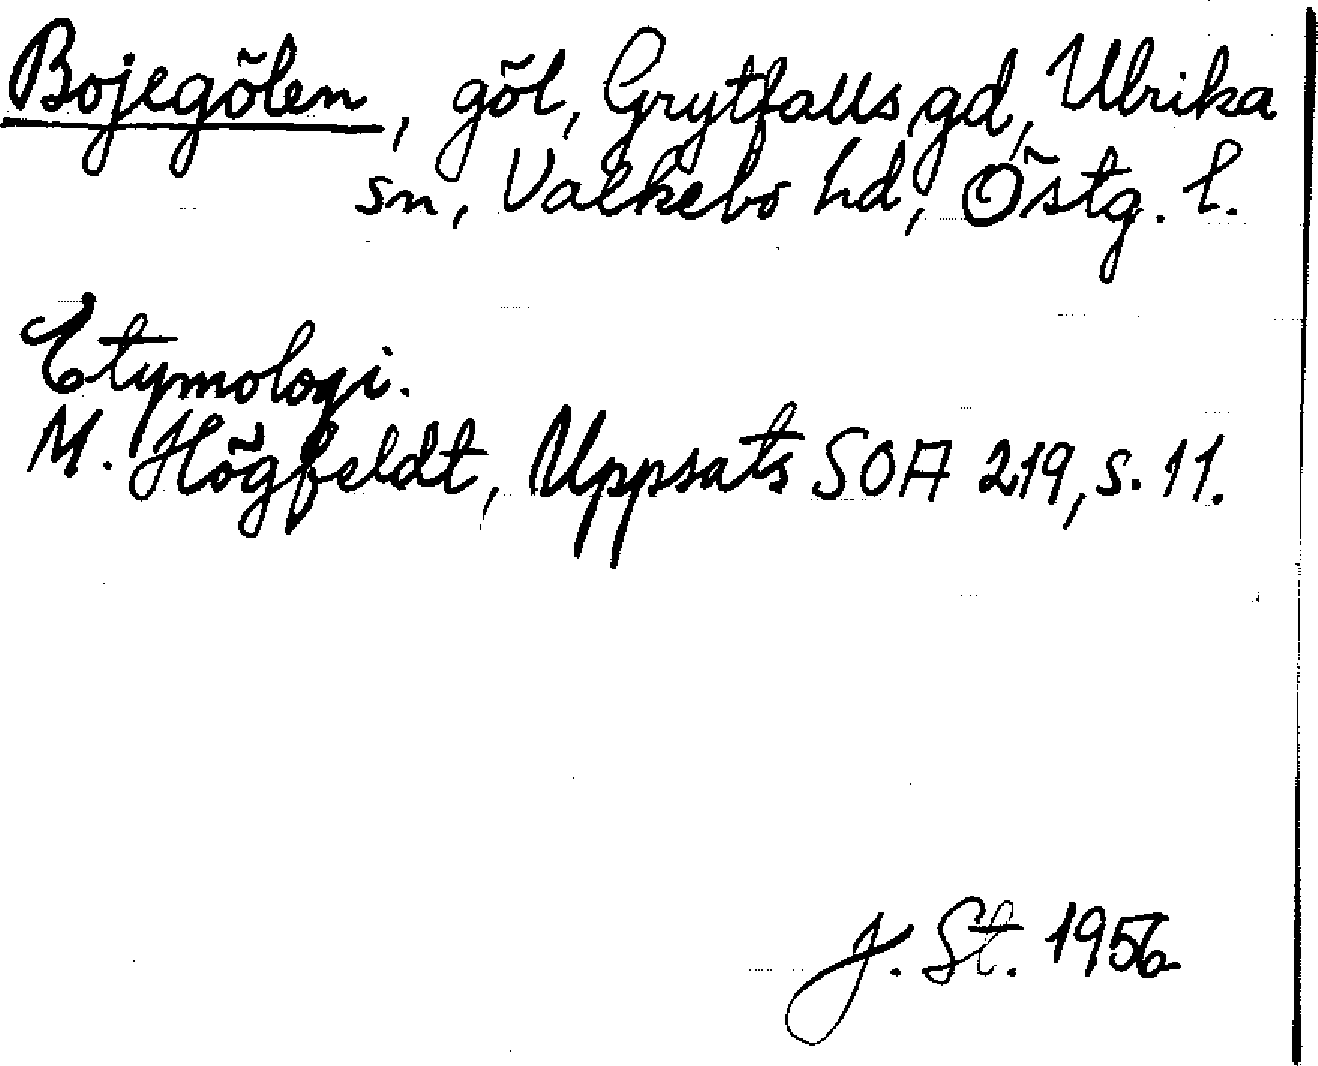 Bojegölen, göl, Grytfalls gd, Ulrika
sn, Valkebo hd, Östg. l.
Etymologi.
M. Högfeldt, Uppsats SOA 219, s. 11.
J. St. 1956